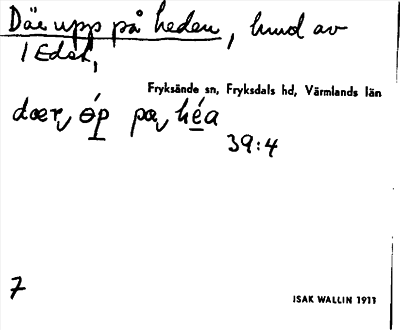 Där upp på heden, hmd av
1 Edsh,
Fryksände sn, Fryksdals hd, Värmlands län
dær óp pa héa
39:4
7
ISAK WALLIN 1911